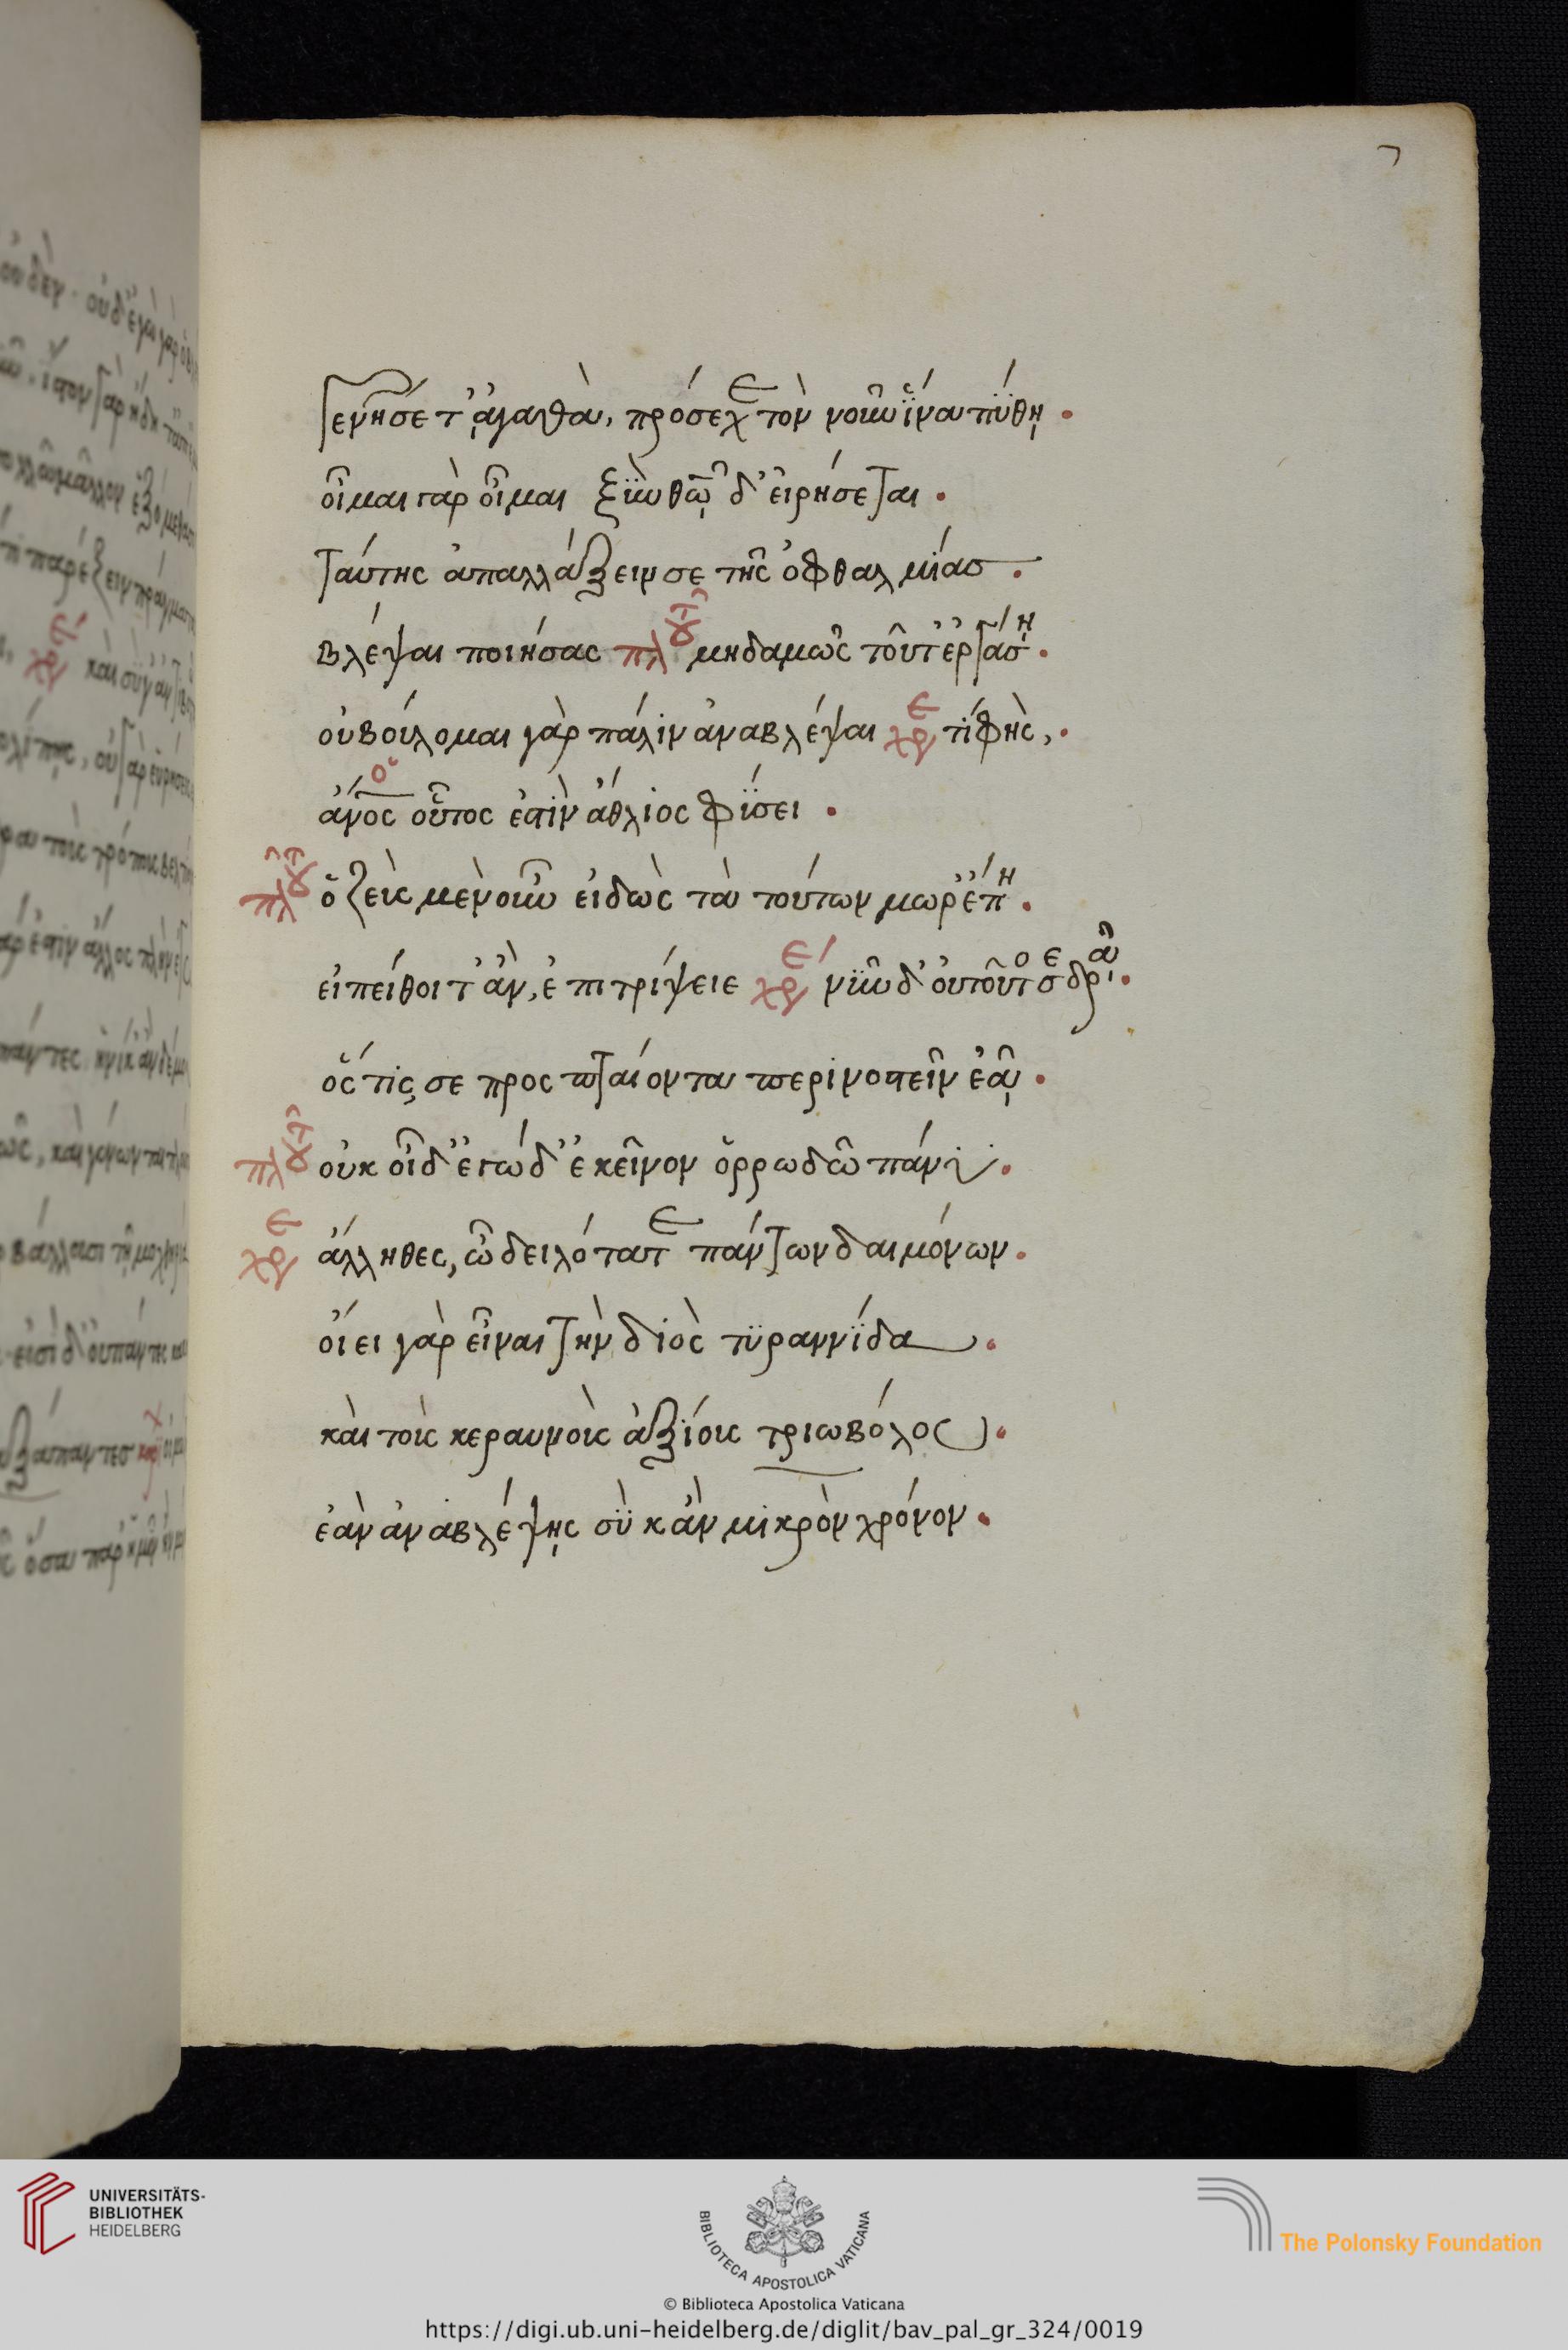 7
γενήσετ' ἀγαθὰ, πρόσεχε τὸν νοῦν ἵνα πύθῃ.
οἶμαι γὰρ οἶμαι ξὺν θεῷ δ' εἰρήσεται.
ταύτης ἀπαλλάξειν σε τῆς ὀφθαλμίας.
βλέψαι ποιήσας πλοῦτ μηδαμῶς τοῦτ' ἐργάσῃ.
οὐ βούλομαι γὰρ πάλιν ἀναβλέψαι χρε τί φής.
ἄνος οὗτος ἐστὶν ἄθλιος φύσει.
πλοῦτ ὁ ζεὺς μὲν οὖν εἰδὼς τὰ τούτων μῶρ' ἔπη.
εἰ πείθοιτ' ἂν, ἐπιτρίψειε χρε νῦν δ' οὐ τοῦτο σε δρᾷ.
ὅστις σε προσπταίοντα περινοστεῖν ἐᾷ.
πλοῦτ οὐκ οἶδ' ἐγώ δ' ἐκεῖνον ὀρρωδῶ πάνυ.
χρε ἄλληθες, ὦ δειλότατε πάντων δαιμόνων.
οἴει γὰρ εἶναι τὴν διὸς τυραννίδα.
καὶ τοὺς κεραυνοὺς ἀξίους τριωβόλου.
ἐὰν ἀναβλέψῃς σὺ κἂν μικρὸν χρόνον.
UNIVERSITÄTS-
BIBLIOTHEK
HEIDELBERG
BIBLIOTECA APOSTOLICA VATICANA
© Biblioteca Apostolica Vaticana
The Polonsky Foundation
https://digi.ub.uni-heidelberg.de/diglit/bav_pal_gr_324/0019